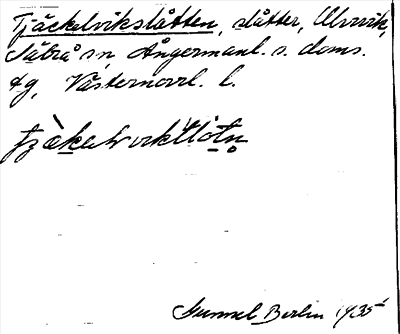 Tjäckelvikslåtten, slåtter, Ulvvik,
Säbrå sn Ångermanl. s. doms.
tg, Västernorrl. l.
Gunnel Berlin 1935